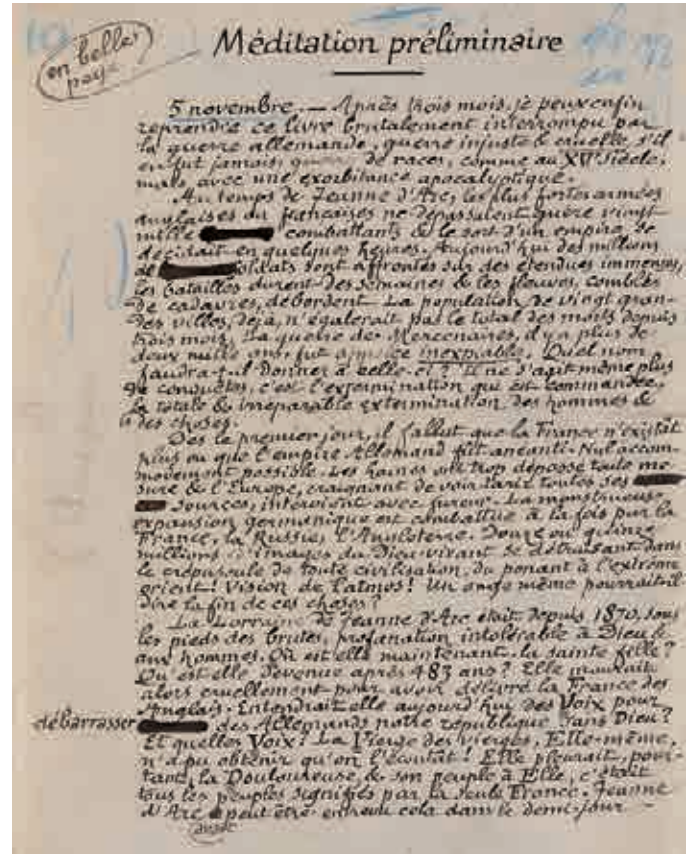 en belle
page
Méditation préliminaire
5 novembre. — Après trois mois, je peux enfin
reprendre ce livre brutalement interrompu par
la guerre allemande, guerre injuste & cruelle s'il
en fut jamais, guerre de races, comme au XVe siècle,
mais avec une exorbitance apocalyptique.
Au temps de Jeanne d'Arc, les plus fortes armées
anglaises ou françaises ne dépassaient guère vingt
mille combattants & le sort d'un empire se
décidait en quelques heures. Aujourd'hui des millions
de soldats sont affrontés sur des étendues immenses,
les batailles durent des semaines & les fleuves, comblés
de cadavres, débordent. La population de vingt gran-
des villes, déjà, n'égalerait pas le total des morts depuis
trois mois. La guerre des Mercenaires, il y a plus de
deux mille ans, fut appelée inexpiable. Quel nom
faudra-t-il donner à celle-ci? Il ne s'agit même plus
de conquêtes, c'est l'extermination qui est commandée,
la totale & irréparable extermination des hommes &
des choses.
Dès le premier jour, il fallut que la France n'existât
plus ou que l'empire Allemand fût anéanti. Nul accom-
modement possible. Les haines ont trop dépassé toute me-
sure & l'Europe, craignant de voir tarir toutes ses
sources, intervient avec fureur. La monstrueuse
expansion germanique est combattue à la fois par la
France, la Russie, l'Angleterre. Douze ou quinze
millions d'images du Dieu vivant se détruisant dans
le crépuscule de toute civilisation, du ponant à l'extrême
orient! Vision de Patmos! Un ange même pourrait-il
dire la fin de ces choses?
La Lorraine de Jeanne d'Arc était depuis 1870, sous
les pieds des brutes, profanation intolérable à Dieu &
aux hommes. Où est-elle maintenant, la sainte fille?
Qu'est-elle devenue après 483 ans? Elle mourait
alors cruellement pour avoir délivré la France des
Anglais. Entendrait-elle aujourd'hui des Voix pour
débarrasser des Allemands notre république sans Dieu?
Et quelles Voix! La Vierge des vierges, Elle-même,
n'a pu obtenir qu'on l'écoutât! Elle pleurait, pour-
tant, la Douloureuse, & son peuple à Elle, c'était
tous les peuples signifiés par la seule France. Jeanne
d'Arc peut être entrevu cela dans le demi-jour
avait